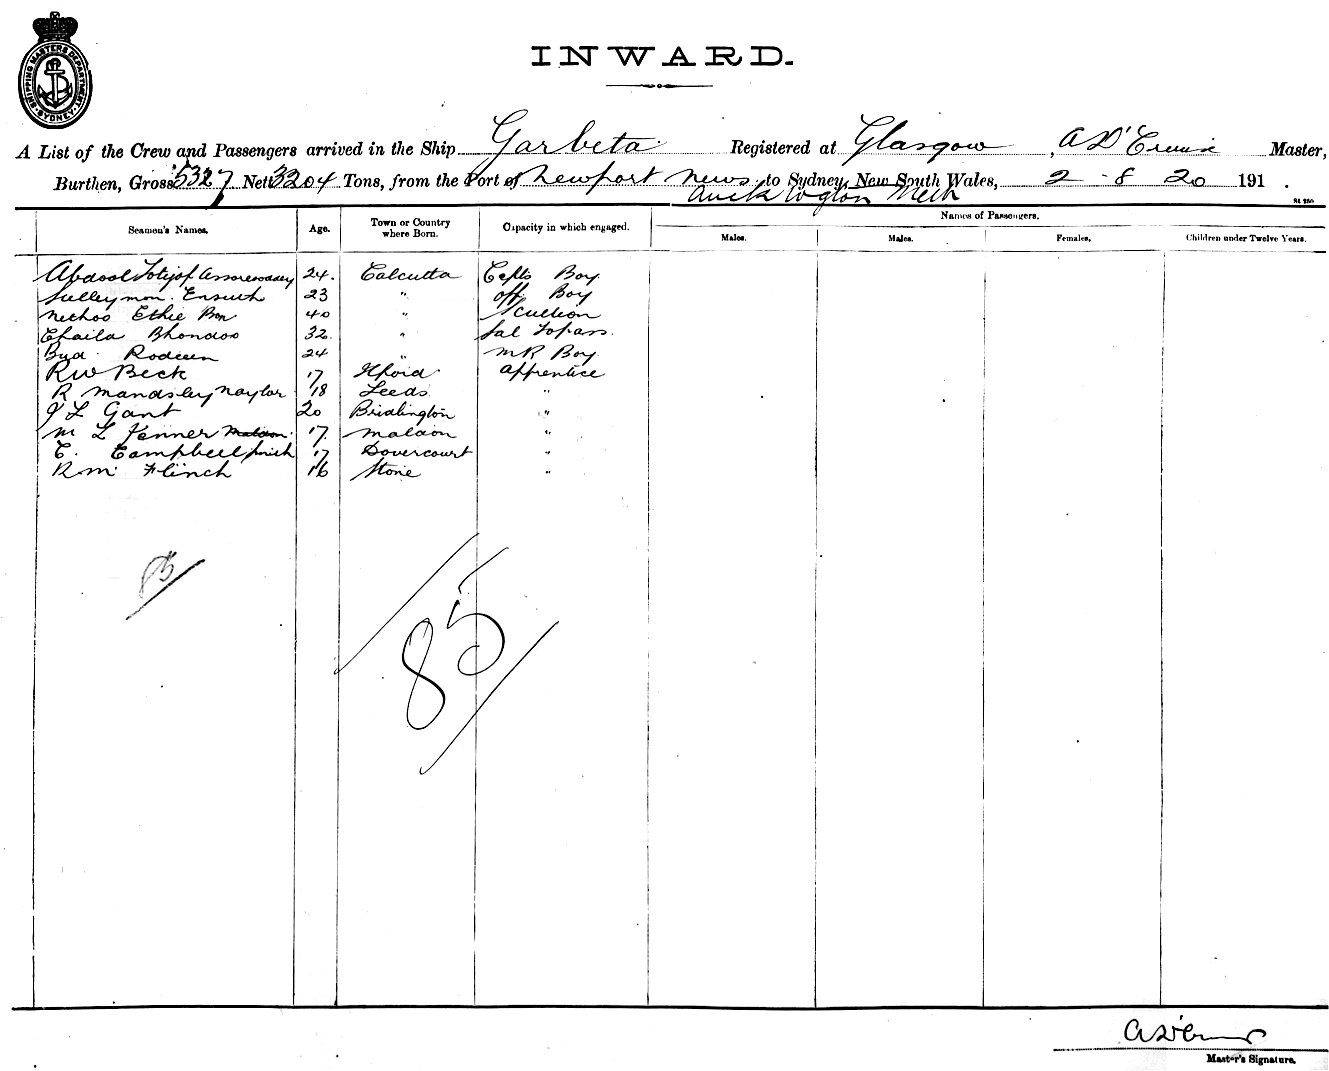 SHIPPING MASTERS DEPARTMENT SYDNEY
INWARD.
A List of the Crew and Passengers arrived in the Ship Garbeta Registered at Glasgow, A D' Master,
Burthen, Gross 5327 Nett 3204 Tons, from the Port of Newport News to Sydney, New South Wales, 2 - 8 20 191 .
Auck Wgton Melb
Names of Passengers.
Seamen's Names. Age. Town or Country where Born. Capacity in which engaged. Males. Males. Females. Children under Twelve Years.
Abdool 24. Calcutta Boy
Sulleymon 23 " off Boy
Ethie Bon 40 " Scullion
Chaila Bhondoo 32 " Sal Topass.
Rodeen 24 " M R Boy
R W Beck 17 Apprentice
R Mandsley Naylor 18 Leeds "
L Gant 20 Bridlington "
M L Fenner 17 Maldon "
C. Campbell 17 Dovercourt "
R M Flinch 16 Stone "
85
85
Master's Signature.